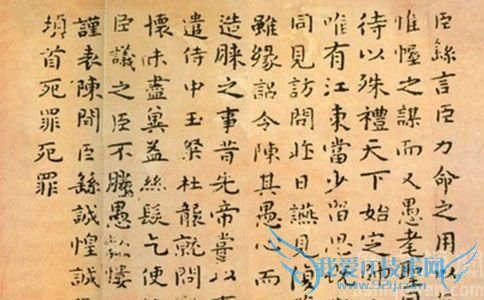 臣繇言臣力命之用以
惟幄之謀而又愚耄聖
待以殊禮天下始定師
唯有江東當少留思
同見訪問昨日燕見
雖緣詔令陳其愚心而
造膝之事昔先帝嘗以事
遣侍中王粲杜襲就問
懷味盡冀益絲髮乞使
臣議之臣不勝愚款慺
謹表陳聞臣繇誠惶誠
頓首死罪死罪
我爱IT技术网